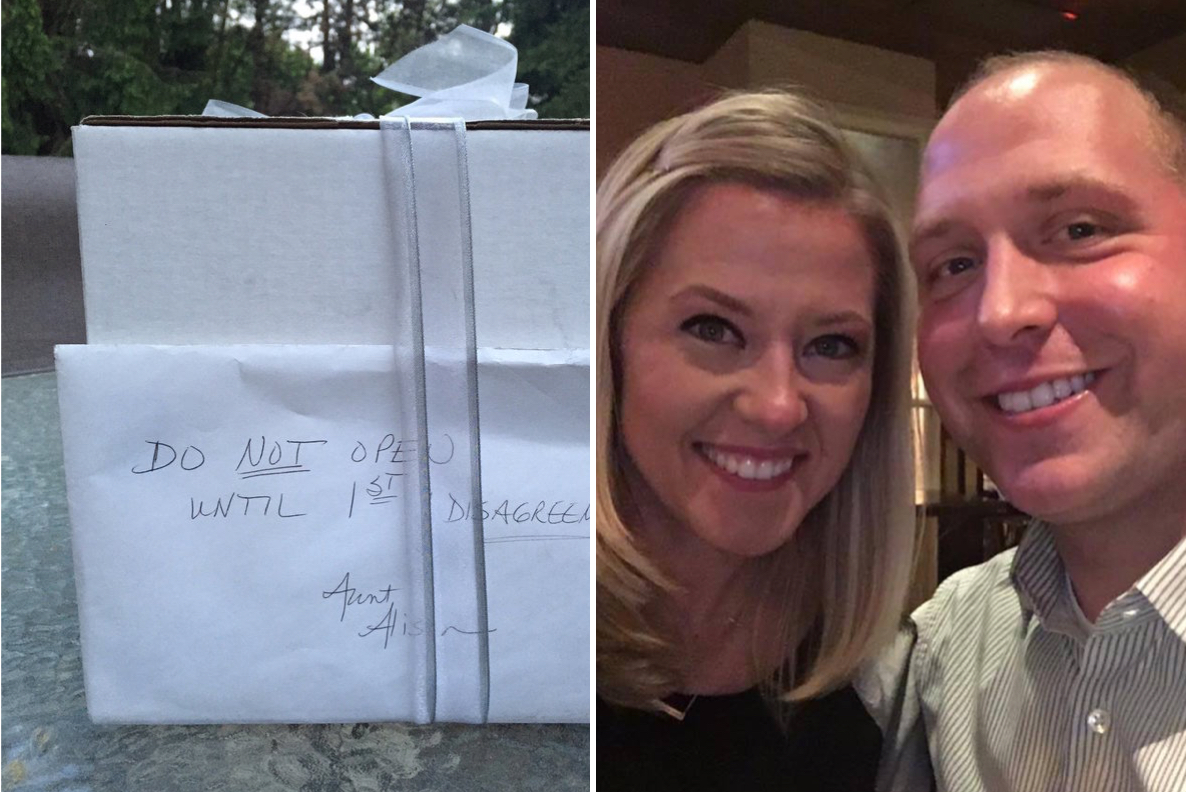 DO NOT OPEN
UNTIL 1ST DISAGREEM
Aunt
Alison